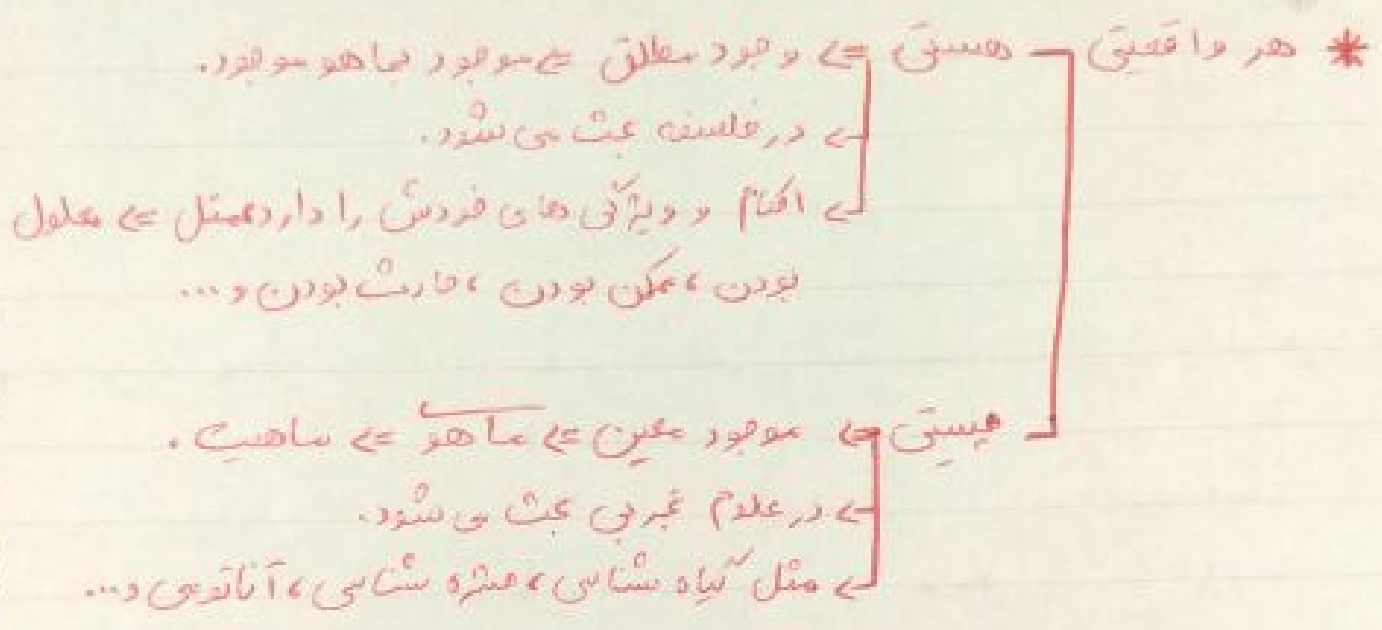 * هر واقعیتی هستی ⇐ وجود مطلق ⇐ موجود بماهو موجود.
← در فلسفه بحث می شود.
← احکام و ویژگی های خودش را دارد مثل ⇐ معلول
بودن ، ممکن بودن ، حادث بودن و ...
چیستی ⇐ موجود معین ⇐ ما هو ⇐ ماهیت .
← در علوم تجربی بحث می شود.
← مثل گیاه شناسی ، حشره شناسی ، آناتومی و...